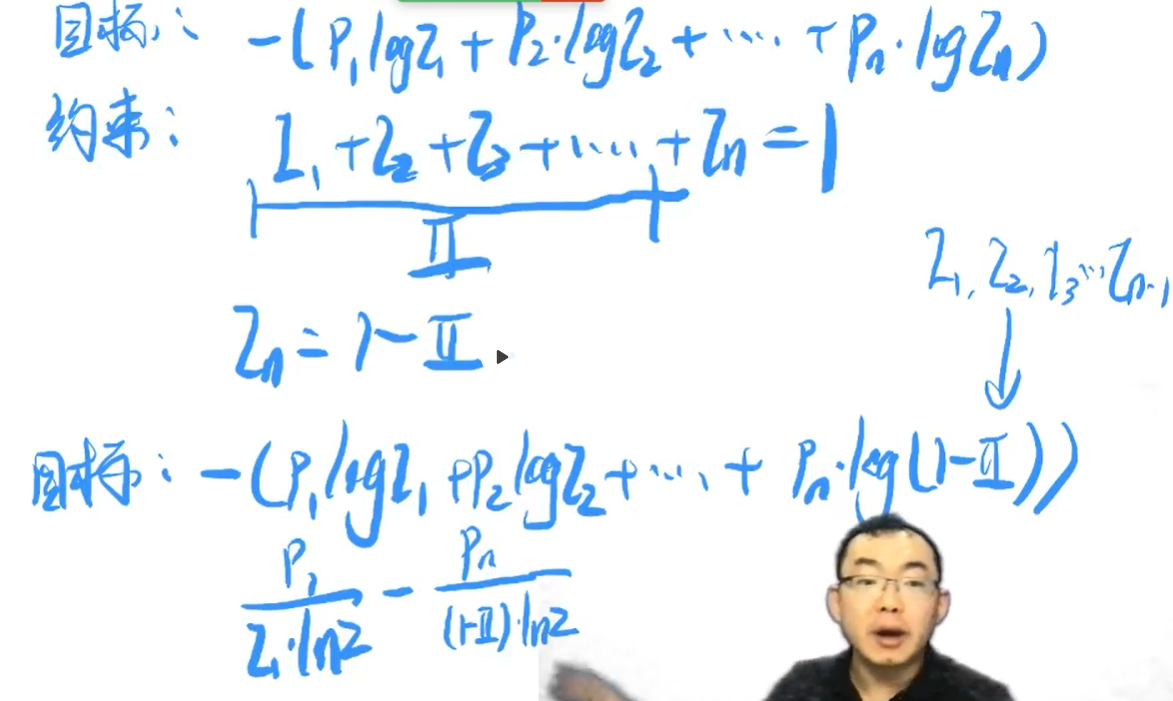 目标: -(P₁logZ₁ + P₂·logZ₂ + ···· + Pₙ·logZₙ)
约束: Z₁ + Z₂ + Z₃ + ····· + Zₙ = 1
Ⅱ
Z₁, Z₂, Z₃ ··· Zₙ₋₁
Zₙ = 1 - Ⅱ
目标: -(P₁logZ₁ + P₂logZ₂ + ···· + Pₙ·log(1-Ⅱ))
P₁/(Z₁·ln2) - Pₙ/((1-Ⅱ)·ln2)